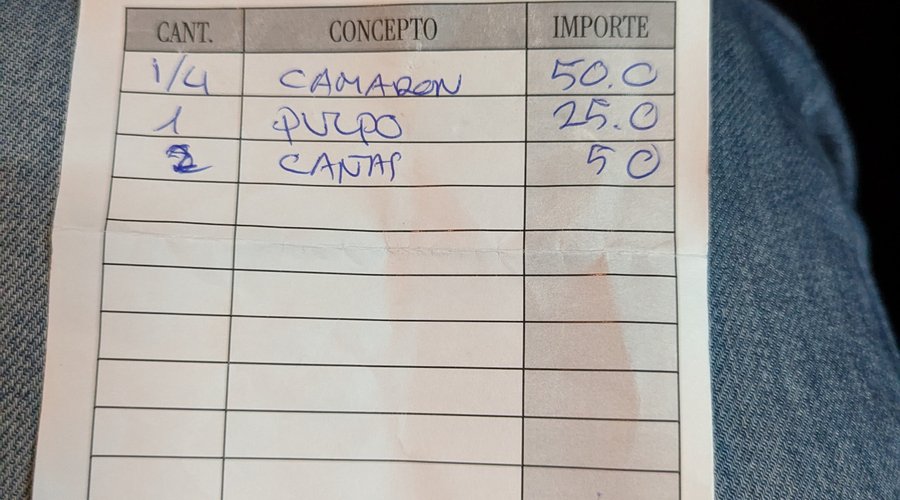 CANT. CONCEPTO IMPORTE
1/4 CAMARON 50.0
1 PULPO 25.0
2 CANAS 5 0